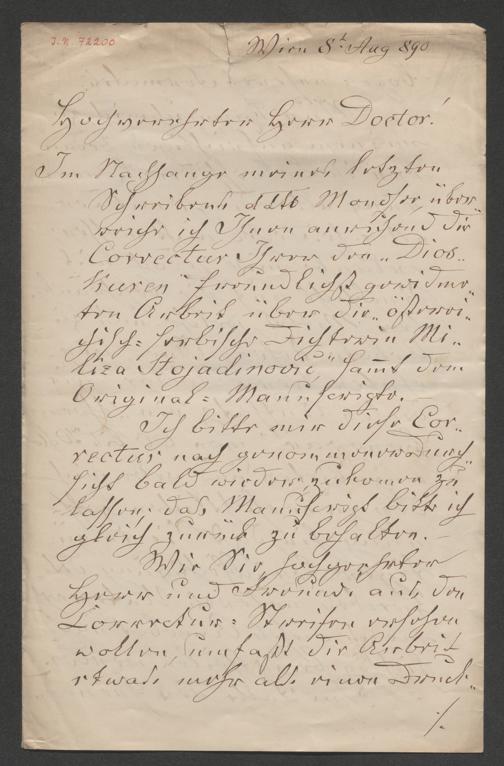 J.N. 72200
Wien 8t Aug 890
Hochverehrter Herr Doctor!
Im Nachhange meines letzten
Schreibens ddto Mondsee, über„
reiche ich Ihnen anruhend die
Correctur Ihrer den „Dios„
kuren" freundlichst gewidme„
ten Arbeit über die „österrei„
chisch-serbische Dichterin Mi„
liza Stojadinovic" sammt dem
Original-Manuscripte.
Ich bitte mir diese Cor„
rectur nach genommener Durch„
sicht bald wieder zukomen zu
lassen; das Manuscript bitte ich
gleich zurück zu behalten.
Wie Sie, hochgeehrter
Herr und Freund, aus den
Correctur-Streifen ersehen
wollen, umfaßt die Arbeit
etwas mehr als einen Druck„
./.